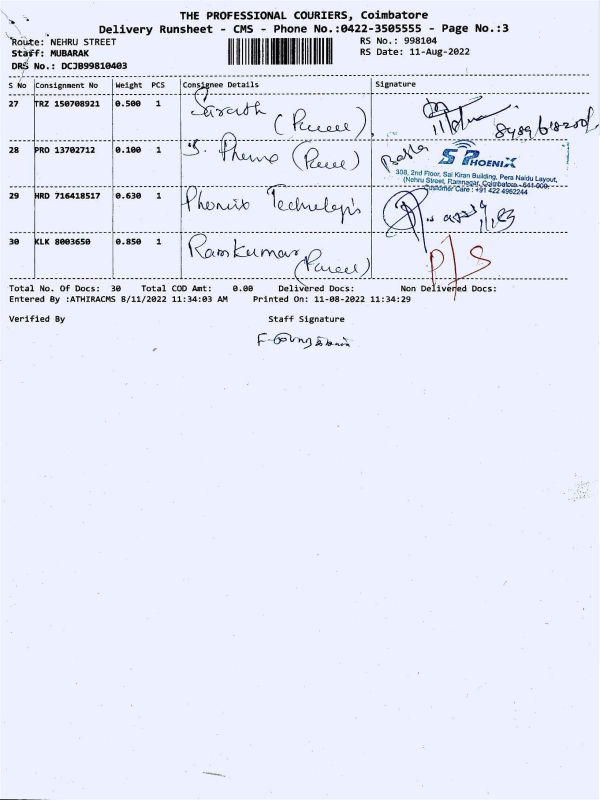 THE PROFESSIONAL COURIERS, Coimbatore
Delivery Runsheet - CMS - Phone No.:0422-3505555 - Page No.:3
Route: NEHRU STREET
RS No.: 998104
Staff: MUBARAK
RS Date: 11-Aug-2022
DRS No.: DCJB99810403
S No Consignment No Weight PCS Consignee Details Signature
27 TRZ 150708921 0.500 1 Sarath
28 PRO 13702712 0.100 1
S PHOENIX
308, 2nd Floor, Sai Kiran Building, Pera Naidu Layout,
(Nehru Street, Ramnagar, Coimbatore - 641 009.
Customer Care : +91 422 4962244
29 HRD 716418517 0.630 1
30 KLK 8003650 0.850 1 Ramkumar P/S
Total No. Of Docs: 30 Total COD Amt: 0.00 Delivered Docs: Non Delivered Docs:
Entered By :ATHIRACMS 8/11/2022 11:34:03 AM Printed On: 11-08-2022 11:34:29
Verified By Staff Signature